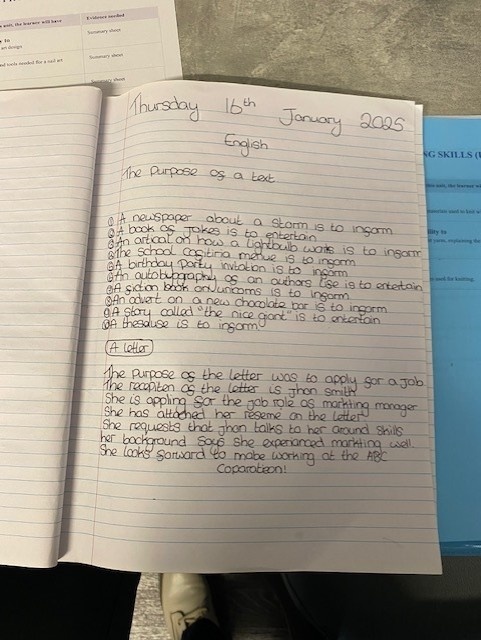 unit, the learner will have
Evidence needed
art design
Summary sheet
tools needed for a
Summary sheet
Summary sheet
Thursday 16th January 2025
English
The Purpose of a text
① A newspaper about a storm is to inform
② A book of Jokes is to entertain
③ An articat on how a lightbulb works is to inform
④ The school cafitiria menue is to inform
⑤ A birthday Party invitation is to inform
⑥ An autobiography of an authors life is to entertain
⑦ A fiction book on unicorns is to inform
⑧ An advert on a new chocolate bar is to inform
⑨ A story called "the nice giant" is to entertain
⑩ A thesause is to inform
A letter
The purpose of the letter was to apply for a job
The recepiten of the letter is jhon smith
She is appling for the job role of markting manager
She has attached her reseme on the letter
She requests that jhon talks to her around skills
her background says she experianced markting well.
She looks forward to mabe working at the ABC
Coparateon!
NG SKILLS (